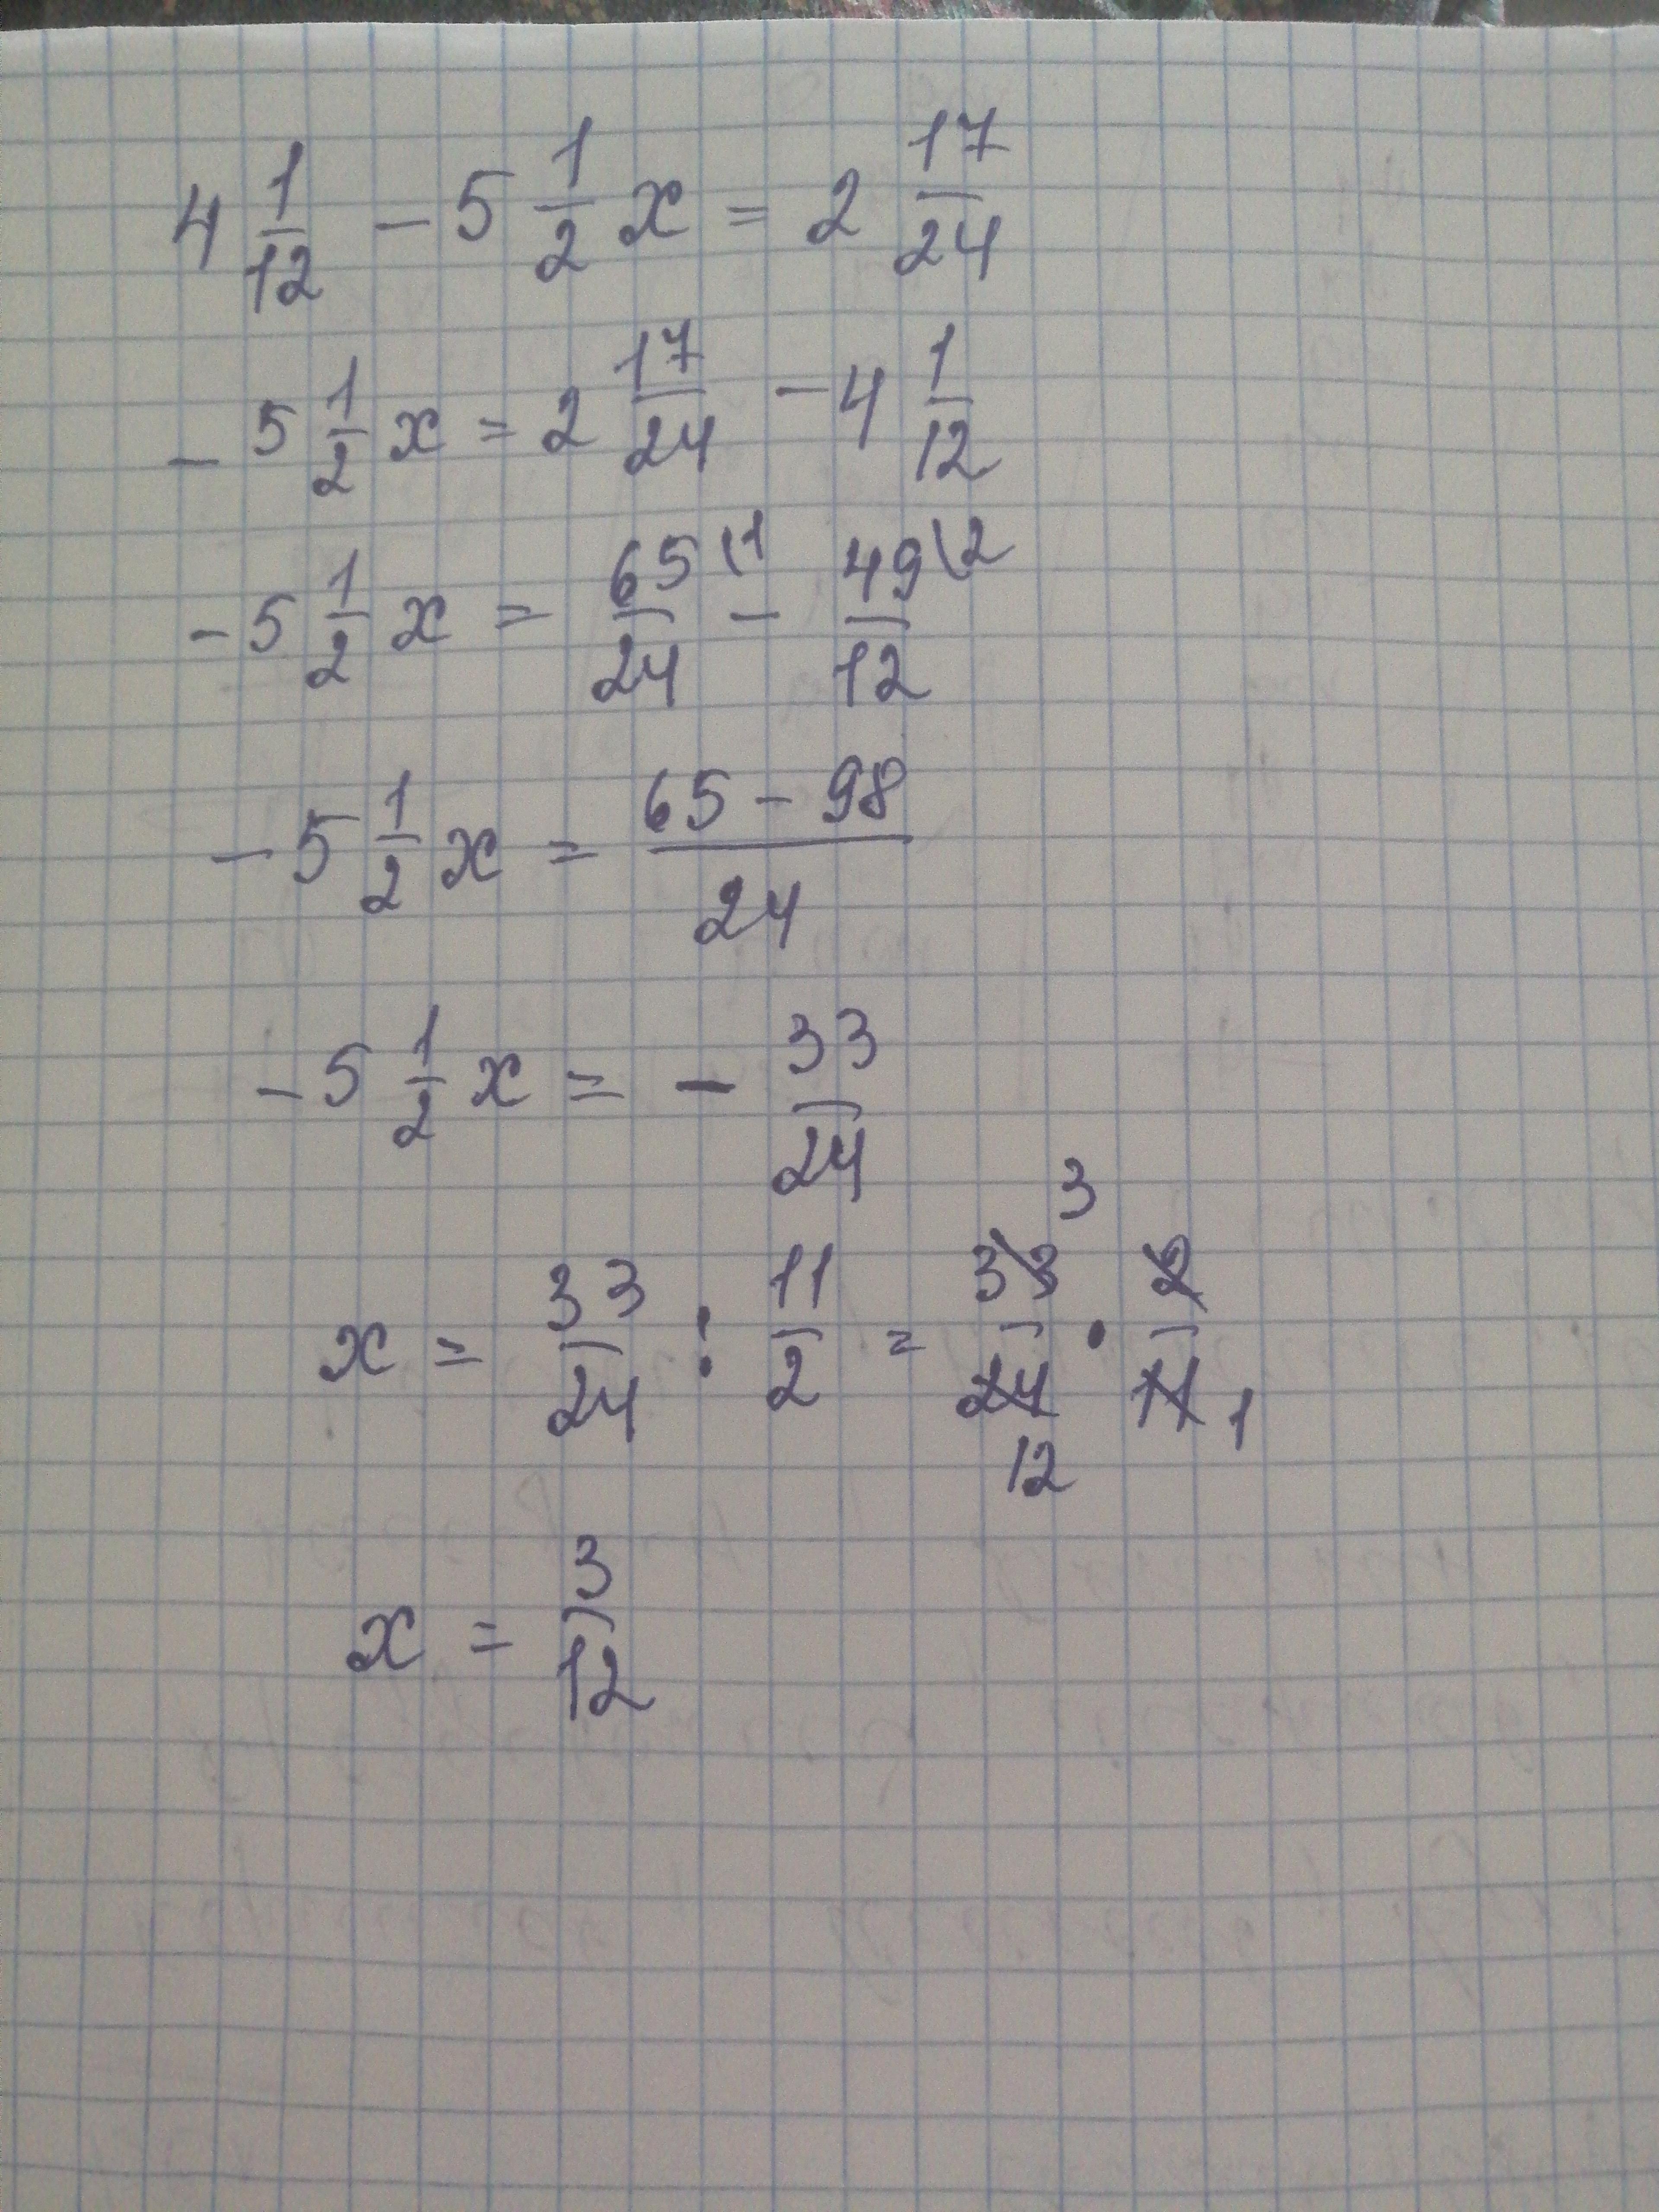 4 1/12 - 5 1/2 x = 2 17/24
- 5 1/2 x = 2 17/24 - 4 1/12
- 5 1/2 x = 65\1/24 - 49\2/12
- 5 1/2 x = 65 - 98/24
- 5 1/2 x = - 33/24
3
x = 33/24 : 11/2 = 33/24 · 2/11 1
12
x = 3/12